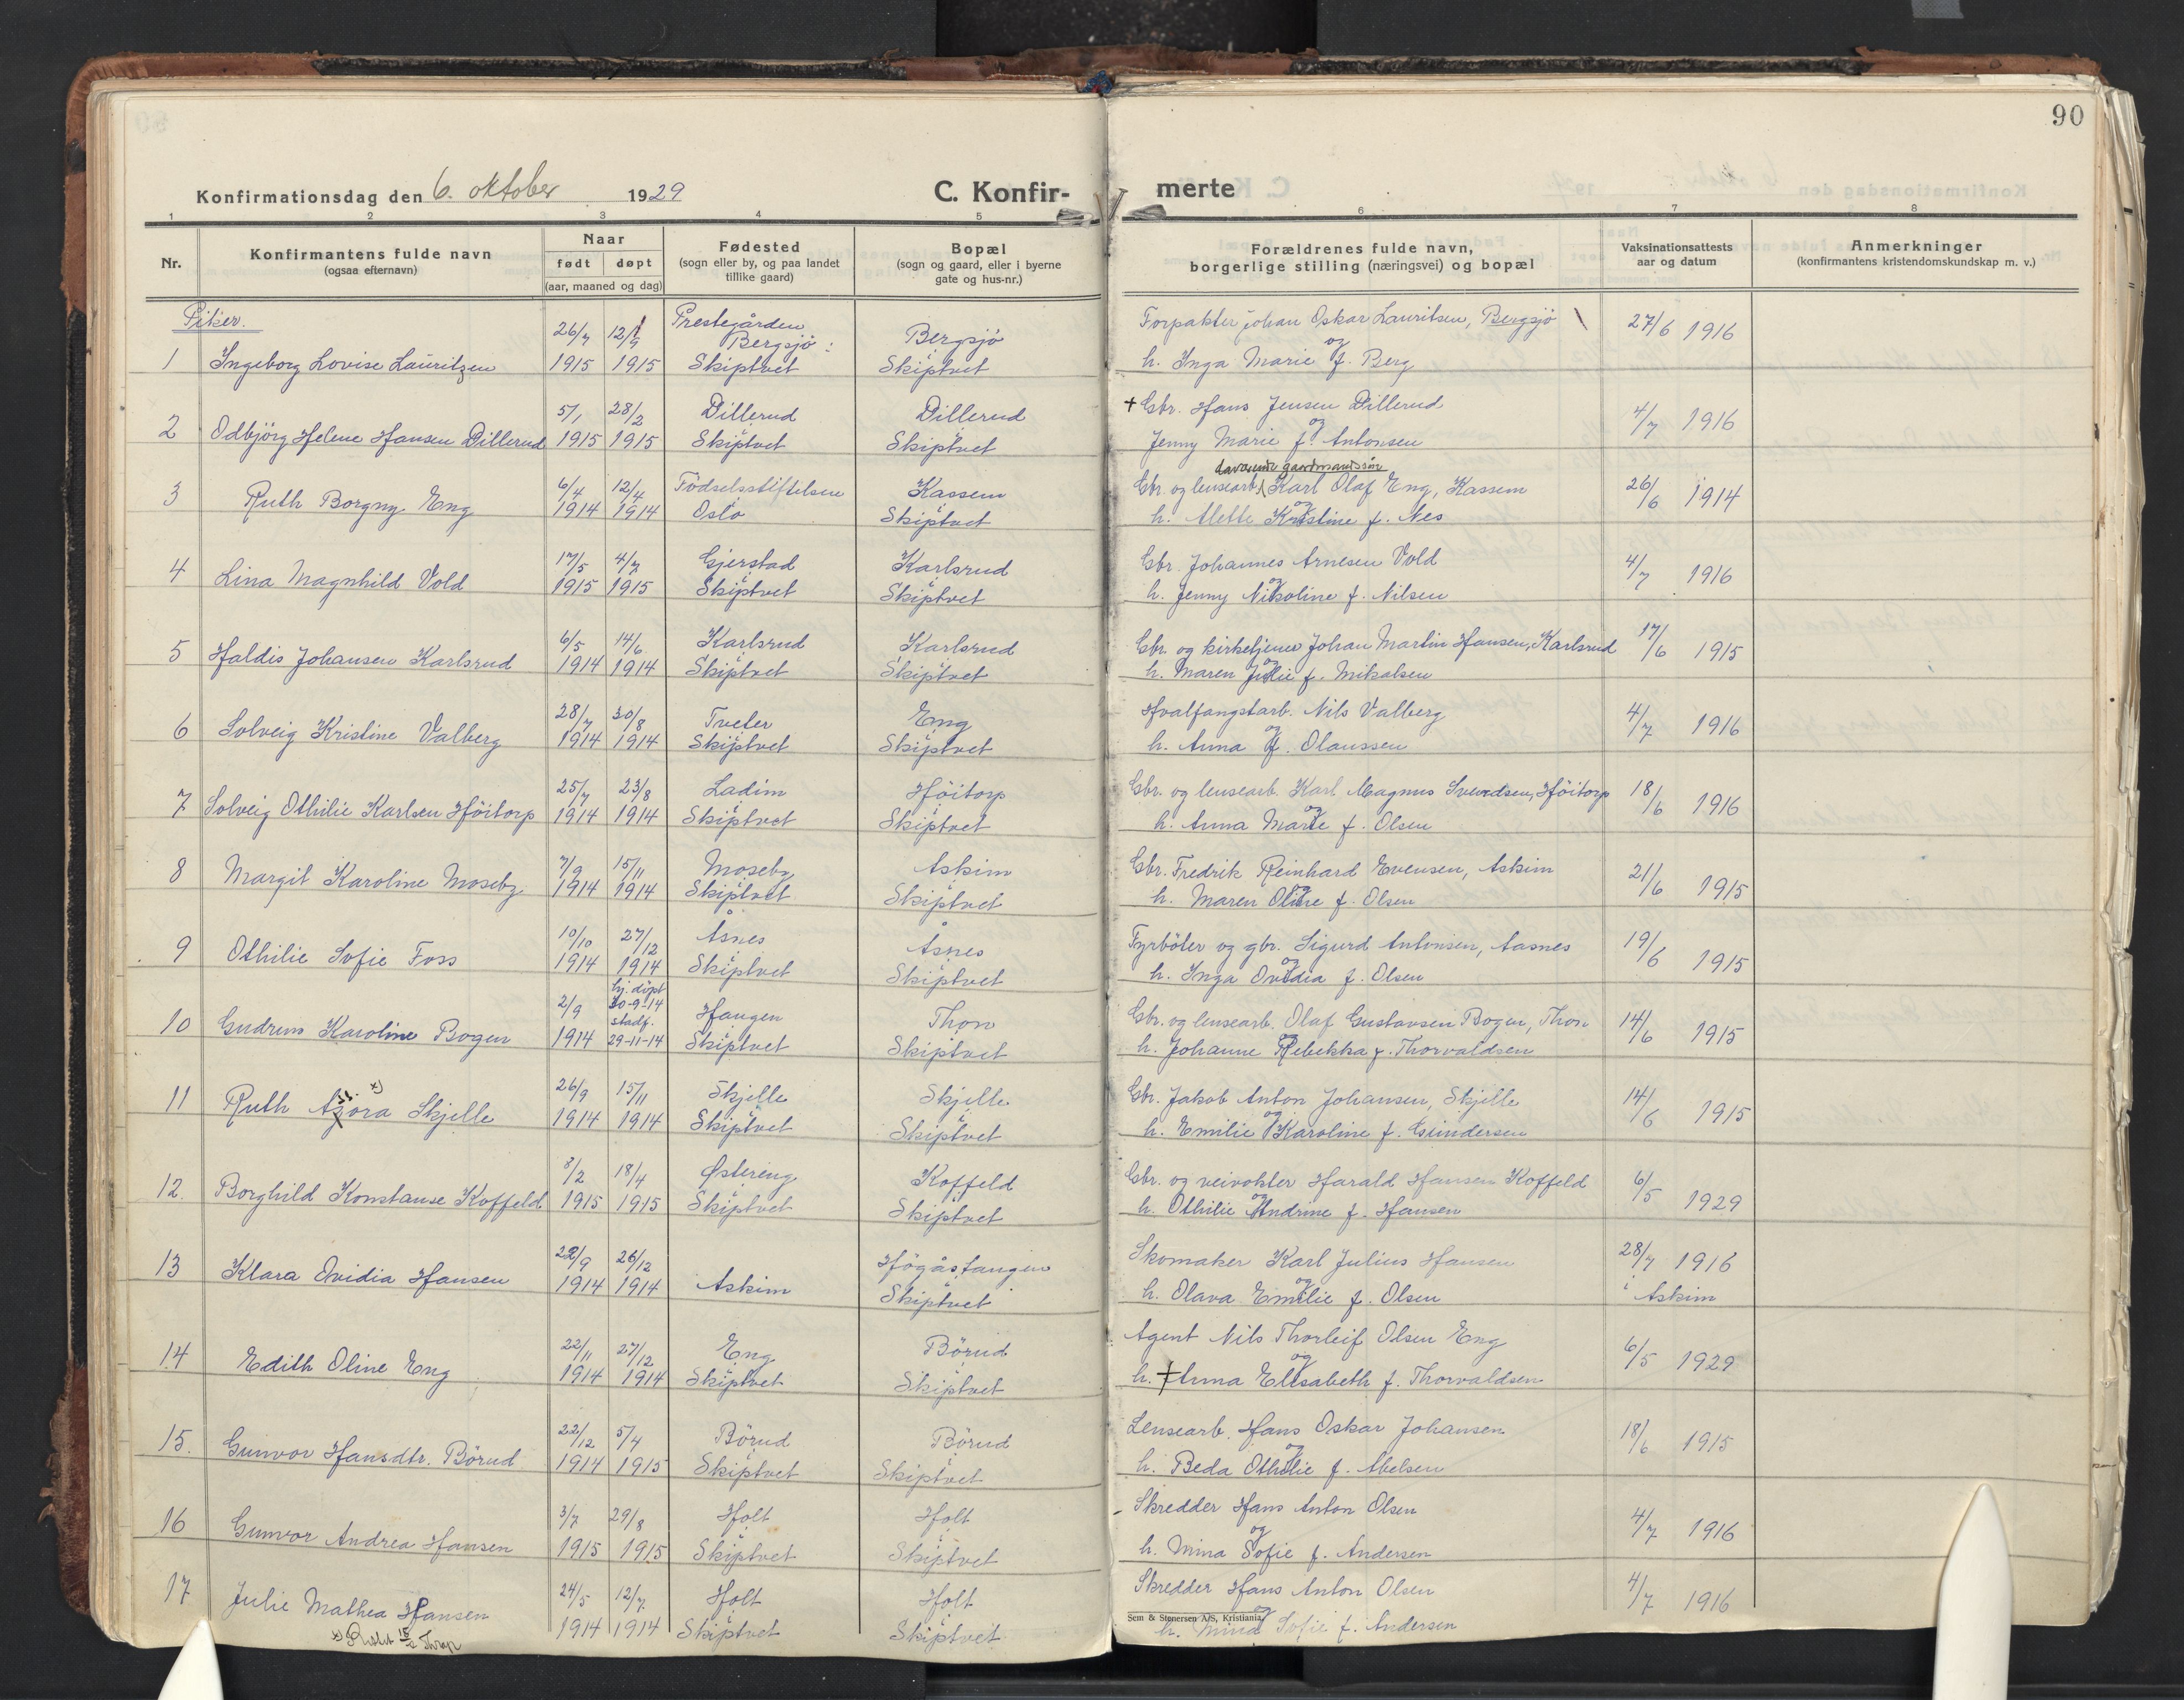 90
Konfirmationsdag den 6. oktober 1929
C. Konfir-
merte
1 2 3 4 5 6 7 8
Nr.
Konfirmantens fulde navn
(ogsaa efternavn)
Naar
født døpt
(aar, maaned og dag)
Fødested
(sogn eller by, og paa landet
tillike gaard)
Bopæl
(sogn og gaard, eller i byerne
gate og hus-nr.)
Forældrenes fulde navn,
borgerlige stilling (næringsvei) og bopæl
Vaksinationsattests
aar og datum
Anmerkninger
(konfirmantens kristendomskundskap m. v.)
Piker.
26/7 12/9 Prestegården Bergsjö: Bergsjö Forpakter Johan Oskar Lauritsen, Bergsjö 27/6 1916
og
1 Ingeborg Lovise Lauritzen 1915 1915 Skiptvet Skiptvet h. Inga Marie f. Berg
5/1 28/2 Dillerud Dillerud + Gbr. Hans Jensen Dillerud 4/7 1916
og
2 Odbjörg Helene Hansen Dillerud 1915 1915 Skiptvet Skiptvet Jenny Marie f. Antonsen
daværende gaardmandssön
3 Ruth Borgny Eng 6/4 12/4 Födselsstiftelsen Kassem Gbr. og lensearb. Karl Olaf Eng, Kassem 26/6 1914
og
1914 1914 Oslo Skiptvet h. Alette Kristine f. Nes
17/5 4/7 Gjerstad Karlsrud Gbr. Johannes Arnesen Vold 4/7 1916
og
4 Lina Magnhild Vold 1915 1915 Skiptvet Skiptvet h. Jenny Nikoline f. Nilsen
6/5 14/6 Karlsrud Karlsrud Gbr. og kirketjener Johan Martin Hansen, Karlsrud 17/6 1915
og
5 Haldis Johansen Karlsrud 1914 1914 Skiptvet Skiptvet h. Maren Julie f. Mikalsen
28/7 30/8 Tveter Eng Hvalfangstarb. Nils Valberg 4/7 1916
og
6 Solveig Kristine Valberg 1914 1914 Skiptvet Skiptvet h. Anna f. Olaussen
25/7 23/8 Ladim Höitorp Gbr. og lensearb. Karl Magnus Svendsen, Höitorp 18/6 1916
og
7 Solveig Othilie Karlsen Höitorp 1914 1914 Skiptvet Skiptvet h. Anna Marie f. Olsen
7/9 15/11 Moseby Askim Gbr. Fredrik Reinhard Evensen, Askim 21/6 1915
og
8 Margit Karoline Moseby 1914 1914 Skiptvet Skiptvet h. Maren Oline f. Olsen
10/10 27/12 Åsnes Åsnes Fyrböter og gbr. Sigurd Antonsen, Aasnes 19/6 1915
og
9 Othilie Sofie Foss 1914 1914 Skiptvet Skiptvet h. Inga Ovidia f. Olsen
hj. döpt
2/9 30-9-14 Haugen Thon Gbr. og lensearb. Olaf Gustavsen Bogen, Thon 14/6 1915
stadf.
og
10 Gudrun Karoline Bogen 1914 29-11-14 Skiptvet Skiptvet h. Johanne Rebekka f. Thorvaldsen
26/9 15/11 Skjelle Skjelle Gbr. Jakob Anton Johansen, Skjelle 14/6 1915
x)
og
11 Ruth Azora Skjelle 1914 1914 Skiptvet Skiptvet h. Emilie Karoline f. Gundersen
8/2 18/4 Østereng Koffeld Gbr. og veivokter Harald Hansen Koffeld 6/5 1929
og
12. Borghild Konstanse Koffeld 1915 1915 Skiptvet Skiptvet h. Othilie Andrine f. Hansen
22/9 26/12 Högåstangen Skomaker Karl Julius Hansen 28/7 1916
og
13 Klara Ovidia Hansen 1914 1914 Askim Skiptvet h. Olava Emilie f. Olsen i Askim
22/11 27/12 Eng Börud Agent Nils Thorleif Olsen Eng 6/5 1929
og
14 Edith Oline Eng 1914 1914 Skiptvet Skiptvet h. +Anna Elisabeth f. Thorvaldsen
22/12 5/4 Börud Börud Lensearb. Hans Oskar Johansen 18/6 1915
og
15. Gunvor Hansdtr. Börud 1914 1915 Skiptvet Skiptvet h. Beda Othilie f. Abelsen
3/7 29/8 Holt Holt Skredder Hans Anton Olsen 4/7 1916
og
16 Gunvor Andrea Hansen 1915 1915 Skiptvet Skiptvet h. Mina Sofie f. Andersen
24/5 12/7 Holt Holt Skredder Hans Anton Olsen 4/7 1916
og
17 Julie Mathea Hansen 1914 1914 Skiptvet Skiptvet h. Mina Sofie f. Andersen
Sem & Stenersen A/S, Kristiania.
x) Rettet 15/2